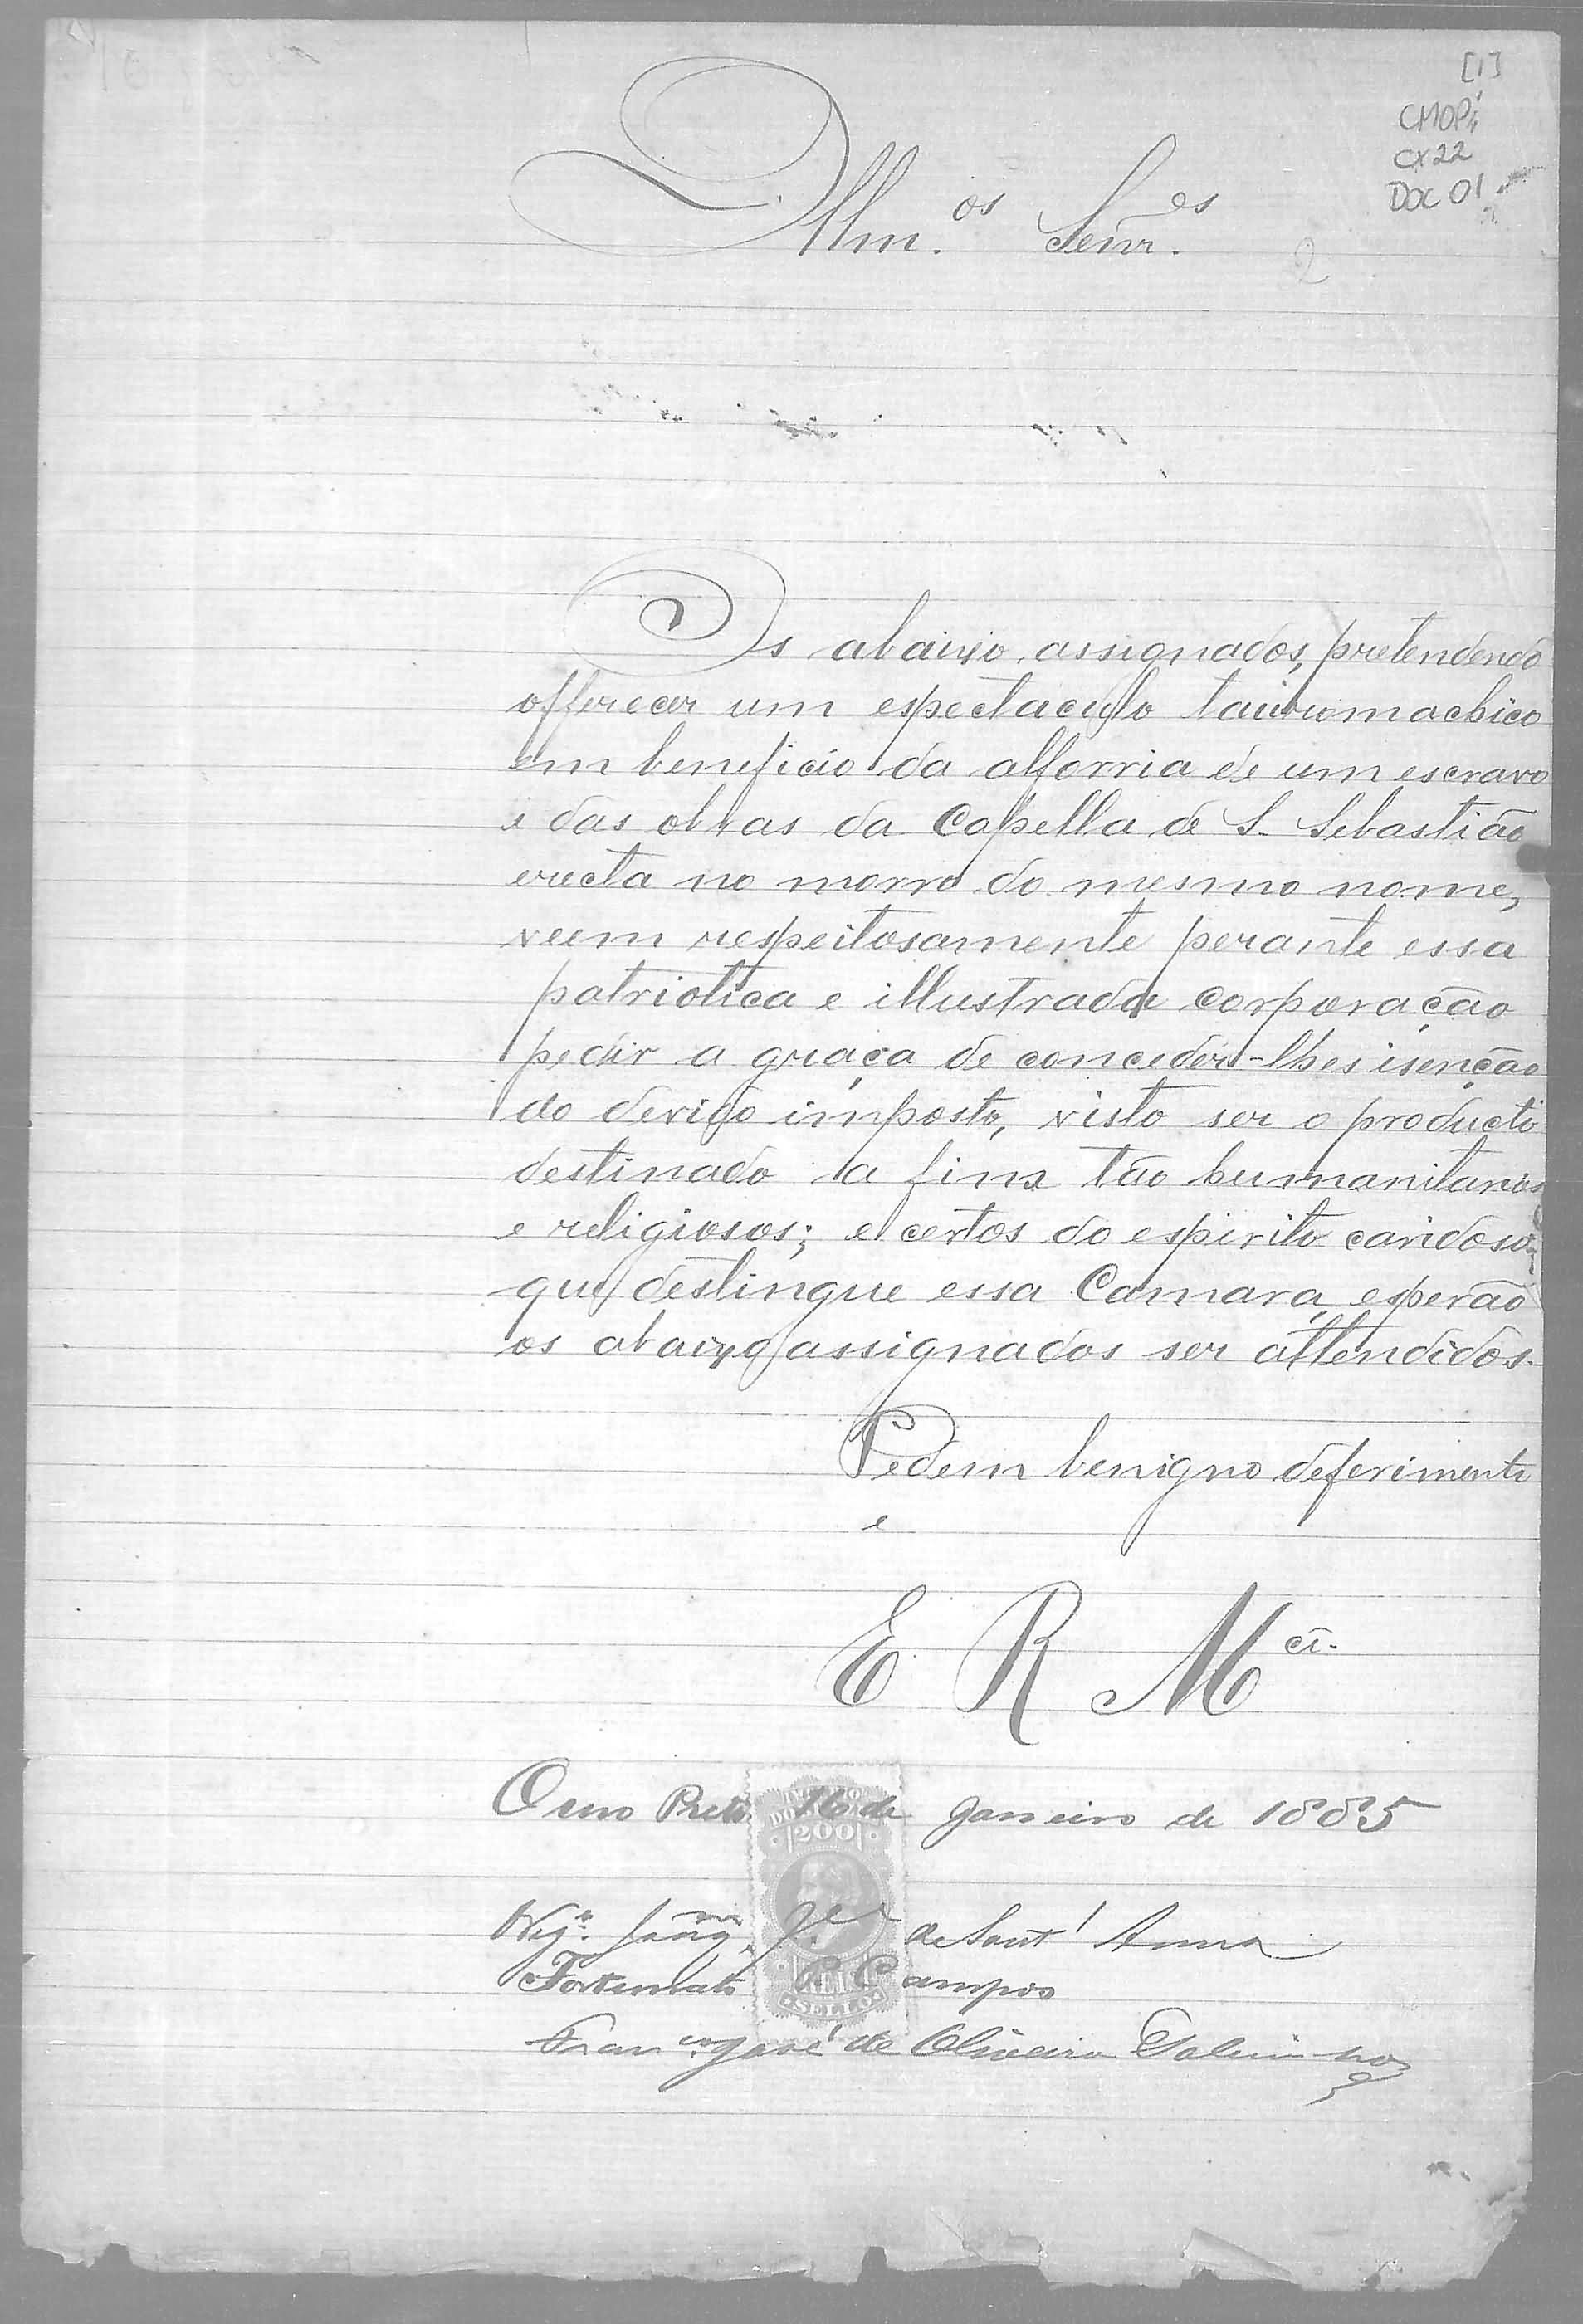 [1]
CMOP
CX22
DOC 01
2
Illm.os Senr.es
Os abaixo assignados, pretendendo
offerecer um espectaculo tauromachico
em beneficio da alforria de um escravo
e das obras da Capella de S. Sebastião
erecta no morro do mesmo nome,
veem respeitosamente perante essa
patriotica e illustrada corporação
pedir a graça de conceder-lhes isenção
do devido imposto, visto ser o producto
destinado a fins tão humanitarios
e religiosos; e certos do espirito caridoso
que destingue essa Camara, esperão
os abaixo assignados ser attendidos.
Pedem benigno deferimento
e
E R M.cê
Ouro Preto 16 de Janeiro de 1885
IMPERIO
DO BRAZIL
200
REIS
SELLO
de Sant'Anna
Fortunato C. Campos
Fran.co José de Oliveira